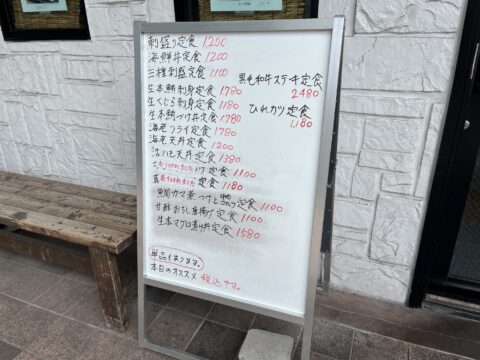 刺盛り定食 1200
海鮮丼定食 1200
三種刺盛定食 1100
生本鮪刺身定食 1780
生くじら刺身定食 1180
生本鮪づけ丼定食 1780
海老フライ定食 1780
海老天丼定食 1200
活ハモ天丼定食 1380
売り切れました 定食 1100
売り切れました 定食 1180
鯛カマ煮つけと 定食 1100
甘酢おろし唐揚げ定食 1100
生本マグロ 定食 1580
黒毛和牛ステーキ定食
2480
ひれカツ定食
1,180
単品もあります。
本日のオススメ 税込です。